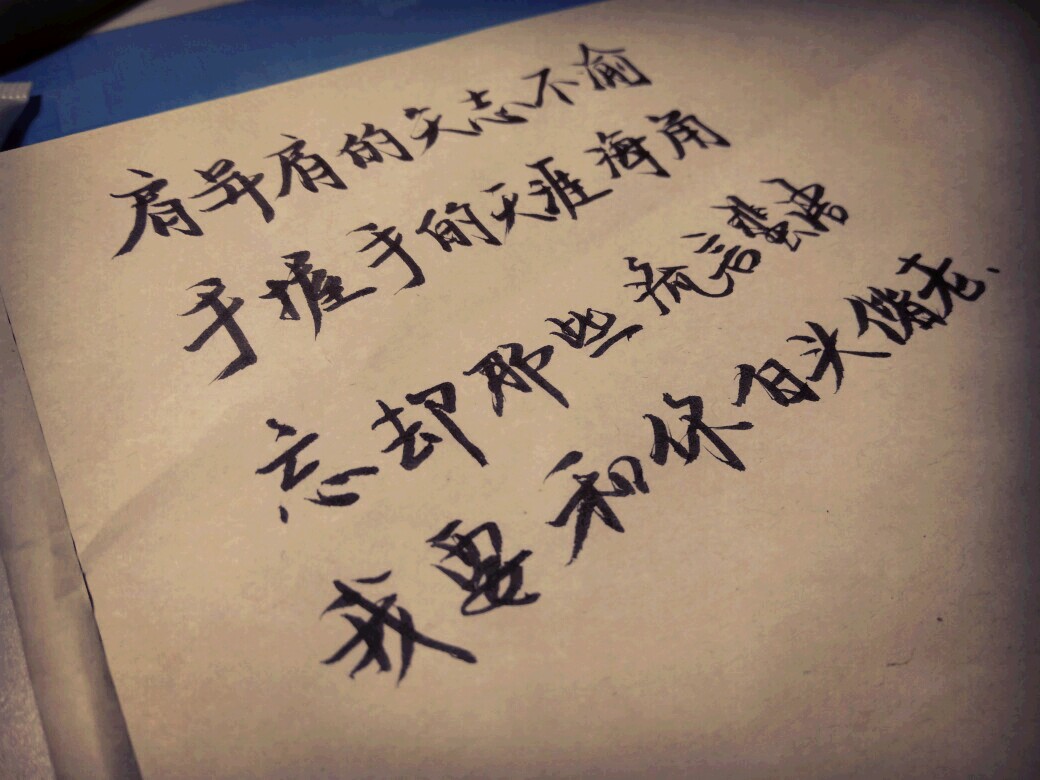 肩并肩的矢志不渝
手握手的天涯海角
忘却那些流言蜚语
我要和你白头偕老.